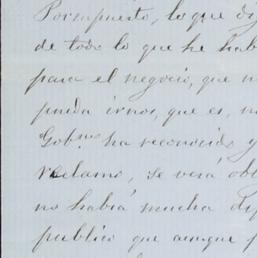 Por supuesto, lo que di
de todo lo que he hab
para el negocio, que n
pueda irnos, que es, n
Gob.no ha reconocido y
reclamo, se verá obl
no habrá mucha di
publico que aunque p